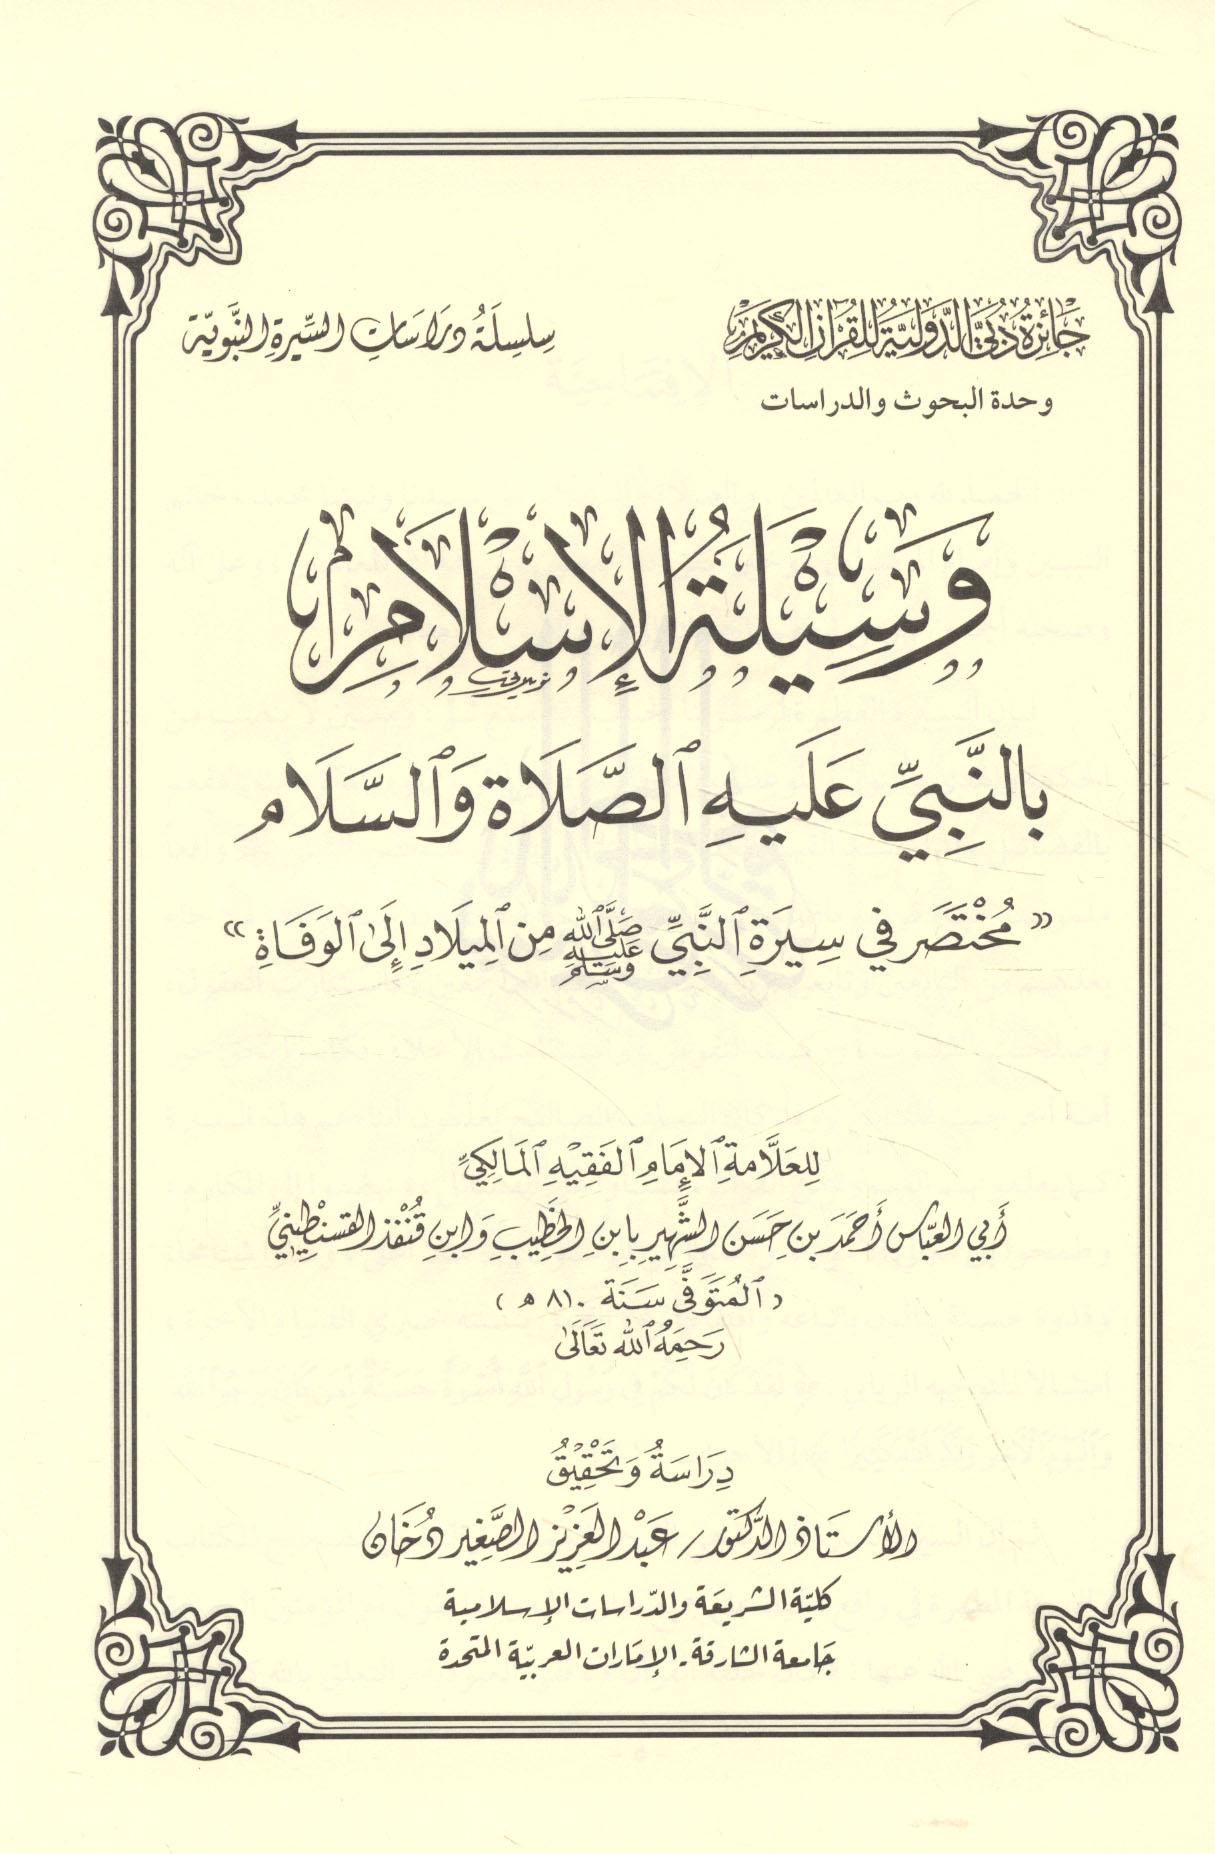 جَائِزَةُ دُبَيّ الدَّوْليَّة لِلقُرْآن الكَرِيمْ
وحدة البحوث والدراسات
سِلسِلَةُ دِرَاسَاتِ السِّيرَةِ النَّبَويَّة
وَسِيْلَةُ الإِسْلَامِ
بالنَّبِيِّ عَلَيهِ ٱلصَّلَاة وَٱلسَّلَام
«مُخْتَصَر في سِيرَةِ ٱلنَّبِيِّ صَلَّى ٱللَّه عَلَيْهِ وَسَلَّمَ مِن ٱلمِيلَادِ إِلَىٰ ٱلوَفَاةِ»
لِلعَلَّامةِ ٱلإمَامِ ٱلفَقِيْهِ ٱلمَالِكِيِّ
أَبي العَبَّاس أَحمَد بن حَسَن الشَّهِيرِ بِابنِ الخَطِيبِ وَابنِ قُنْفُذ القسنطِينيِّ
(ٱلمُتَوَفَّىٰ سَنَة ٨١٠ هـ)
رَحِمَهُ ٱللَّه تَعَالَىٰ
دِرَاسَةُ وَتَحْقِيْقُ
الأستَاذ الدَّكتور/ عَبْد العَزِيْز الصَّغِير دُخَان
كليّة الشريعَة والدّراسات الإسلامية
جَامعة الشارقة - الإمَارات العربيّة المتحدة